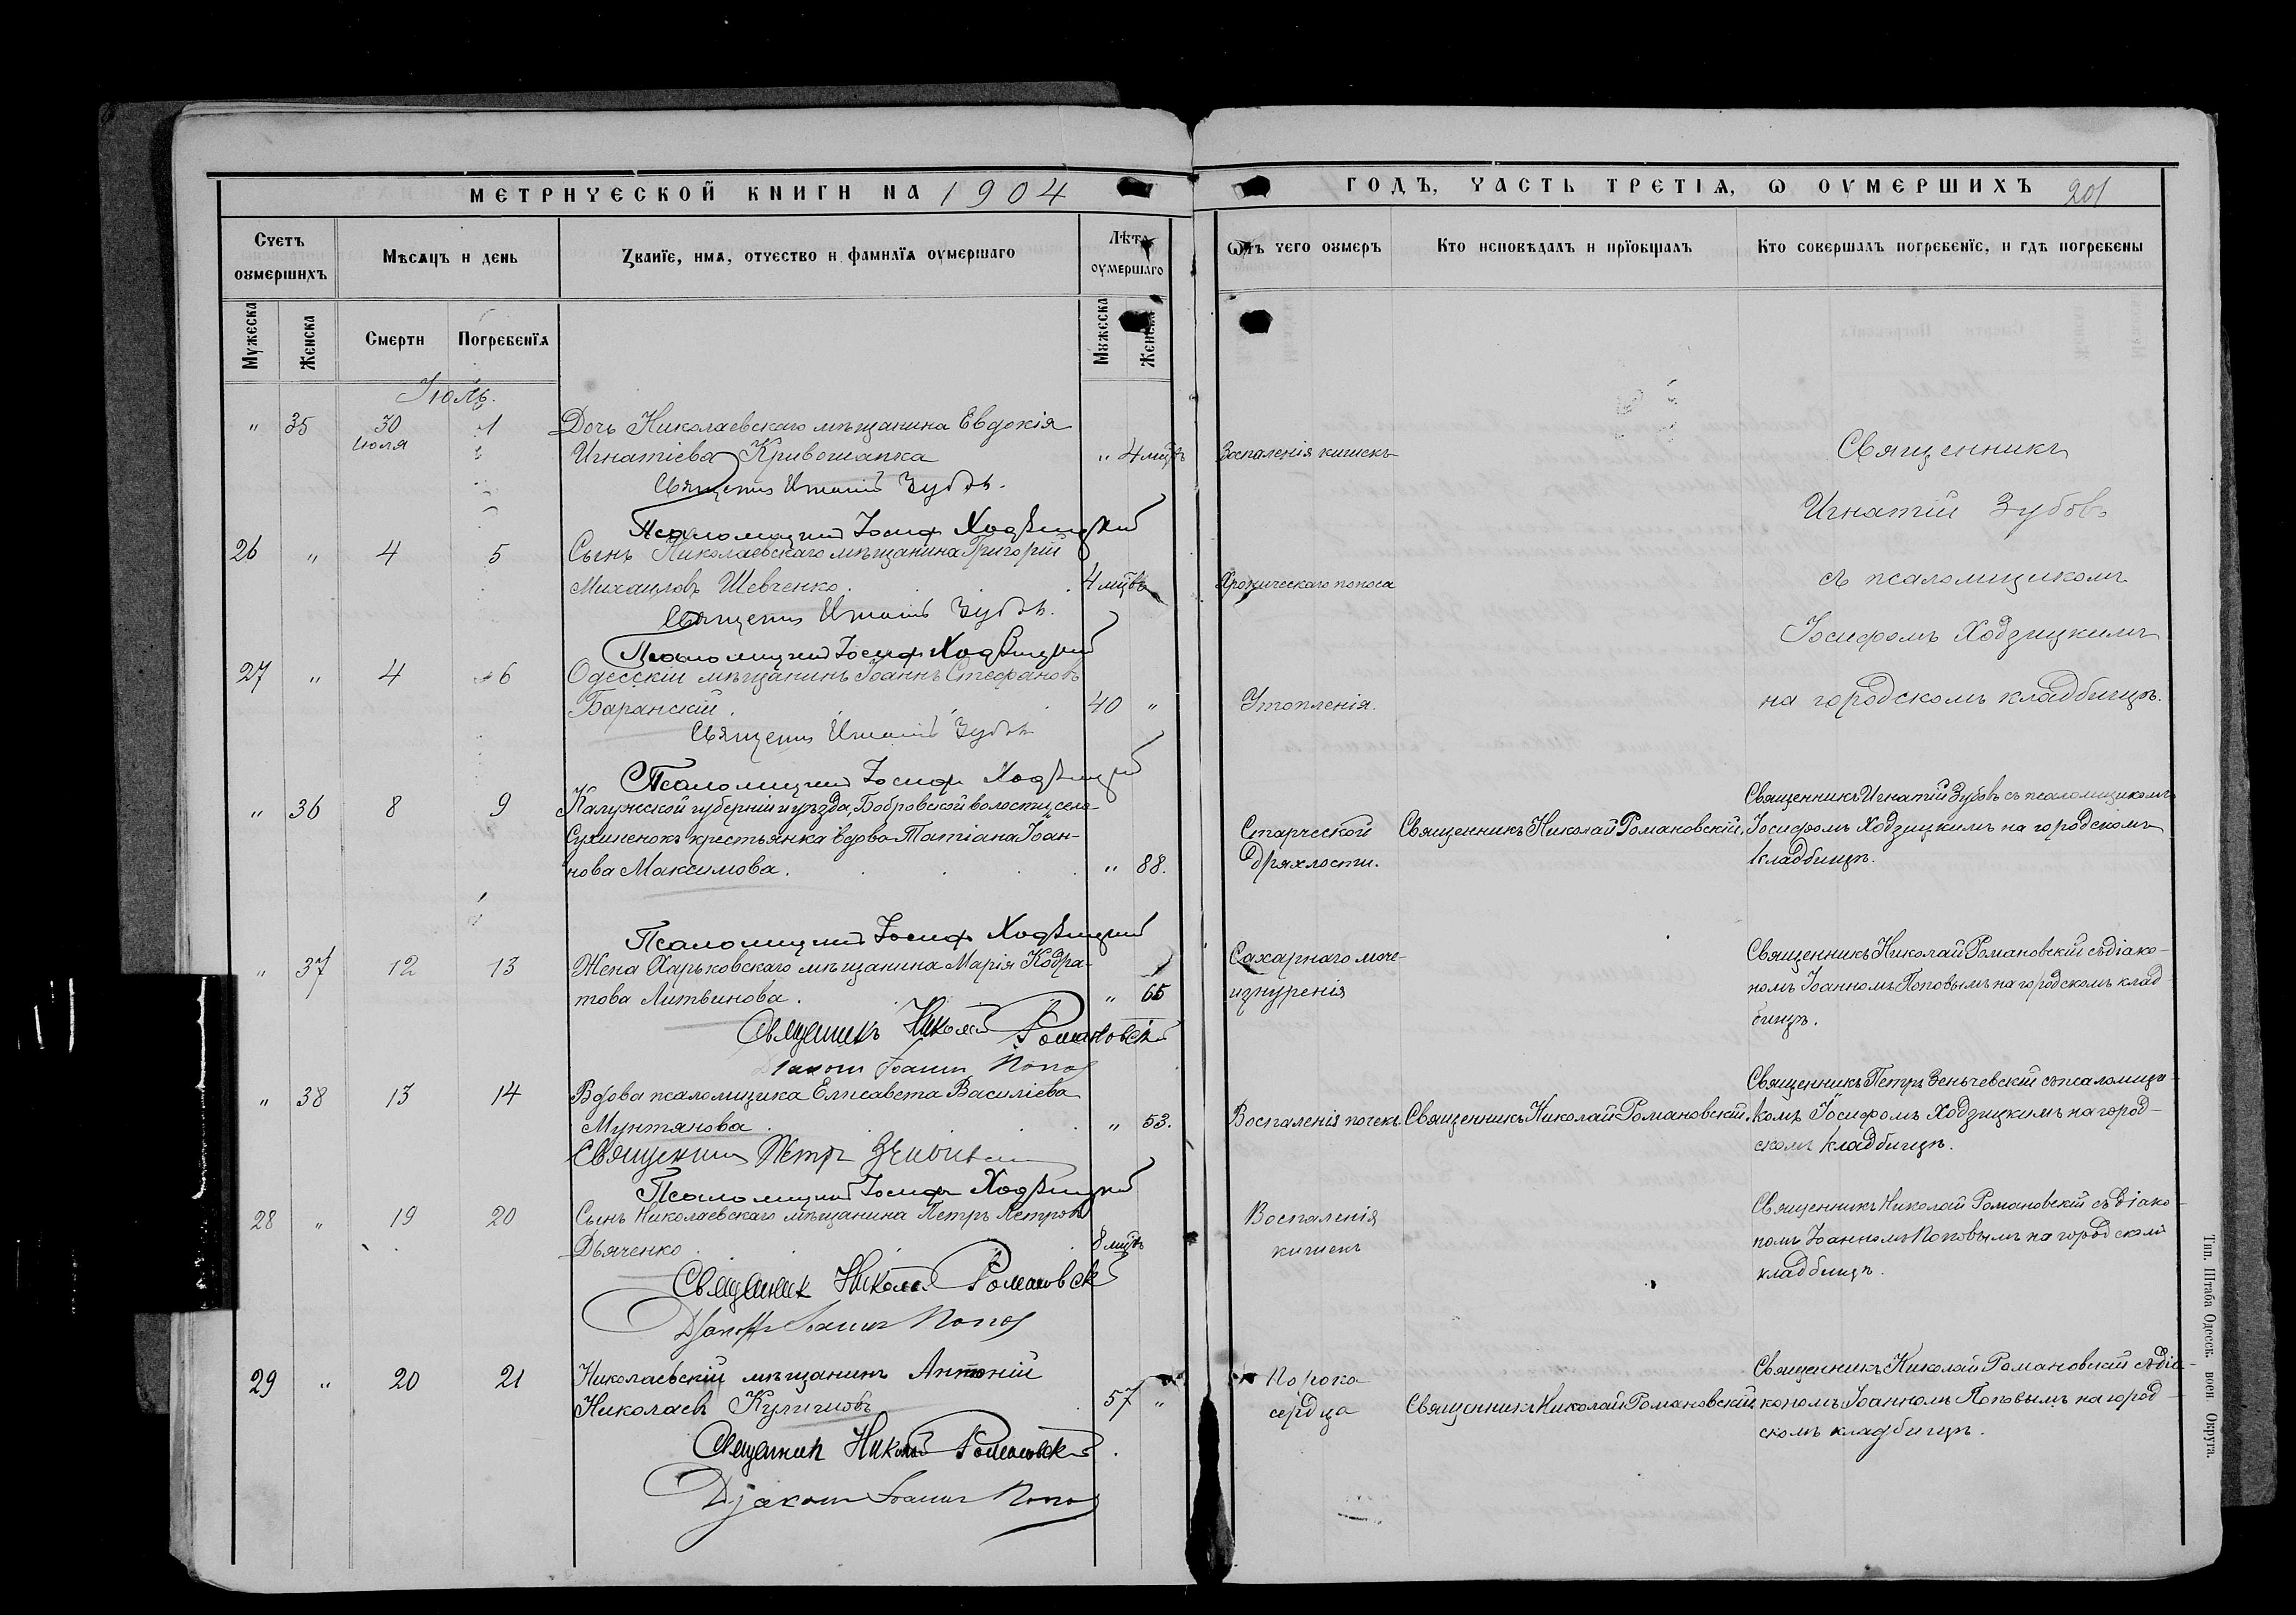 МЕТРИЧЕСКОЙ КНИГИ НА 1904
ГОДЪ, ЧАСТЬ ТРЕТІѦ, Ѡ ОУМЕРШИХЪ 201
Счетъ оумершихъ
Мѣсѧцъ и день
Званїе, имѧ, отчество и фамилїѧ оумершаго
Лѣта оумершаго
Ѿъ чего оумеръ
Кто исповѣдалъ и прїобщалъ
Кто совершалъ погребенїе, и гдѣ погребены
Мужеска
Женска
Смерти
Погребенїѧ
Мужеска
Женска
Іюль.
" 35 30 1 Дочь Николаевскаго мѣщанина Евдокія
июля
Игнатіева Кривошапка " 4 мцъ Воспаленія кишекъ
Священникъ Игнатій Зубовъ.
Псаломщикъ Іосифъ Ходзицкій
Священникъ
Игнатій Зубовъ
съ псаломщикомъ
Іосифомъ Ходзицкимъ
на городскомъ кладбищѣ.
26 " 4 5 Сынъ Николаевскаго мѣщанина Григорій
Михаиловъ Шевченко. 4 мцвъ Хроническаго поноса
Священникъ Игнатій Зубовъ.
Псаломщикъ Іосифъ Ходзицкій
27 " 4 6 Одесскій мѣщанинъ Іоаннъ Стефановъ
Баранскій. 40 " Утопленія.
Священникъ Игнатій Зубовъ
Псаломщикъ Іосифъ Ходзицкій
" 36 8 9 Калужской губерніи и уѣзда, Бобровской волости, села
Сухиненокъ крестьянка вдова Татіана Іоан-
нова Максимова. " 88.
Старческой
дряхлости.
Священникъ Николай Романовскій.
Священникъ Игнатій Зубовъ съ псаломщикомъ
Іосифомъ Ходзицкимъ на городскомъ
кладбищѣ.
Псаломщикъ Іосифъ Ходзицкій
" 37 12 13 Жена Харьковскаго мѣщанина Марія Кодра-
това Литвинова. " 65
Сахарнаго моче-
изнуренія
Священникъ Николай Романовскій съ діако-
номъ Іоанномъ Поповымъ на городскомъ клад-
бищѣ.
Священникъ Николай Романовскій
Діаконъ Іоаннъ Поповъ
" 38 13 14 Вдова псаломщика Елисавета Василіева
Мунтянова. " 53.
Воспаленія почекъ
Священникъ Николай Романовскій.
Священникъ Петръ Зеньчевскій съ псаломщи-
комъ Іосифомъ Ходзицкимъ на город-
скомъ кладбищѣ.
Священникъ Петръ
Псаломщикъ Іосифъ Ходзицкій
28 " 19 20 Сынъ Николаевскаго мѣщанина Петръ Петровъ
Дьяченко. 8 мцъ
Воспаленія
кишекъ
Священникъ Николай Романовскій съ діако-
номъ Іоанномъ Поповымъ на городскомъ
кладбищѣ.
Священникъ Николай Романовскій
Діаконъ Іоаннъ Поповъ
29 " 20 21 Николаевскій мѣщанинъ Антоній
Николаевъ 57 "
Порока
сердца
Священникъ Николай Романовскій
Священникъ Николай Романовскій съ діа-
кономъ Іоанномъ Поповымъ на город-
скомъ кладбищѣ.
Священникъ Николай Романовскій.
Діаконъ Іоаннъ Поповъ
Тип. Штаба Одесск. воен. Округа.